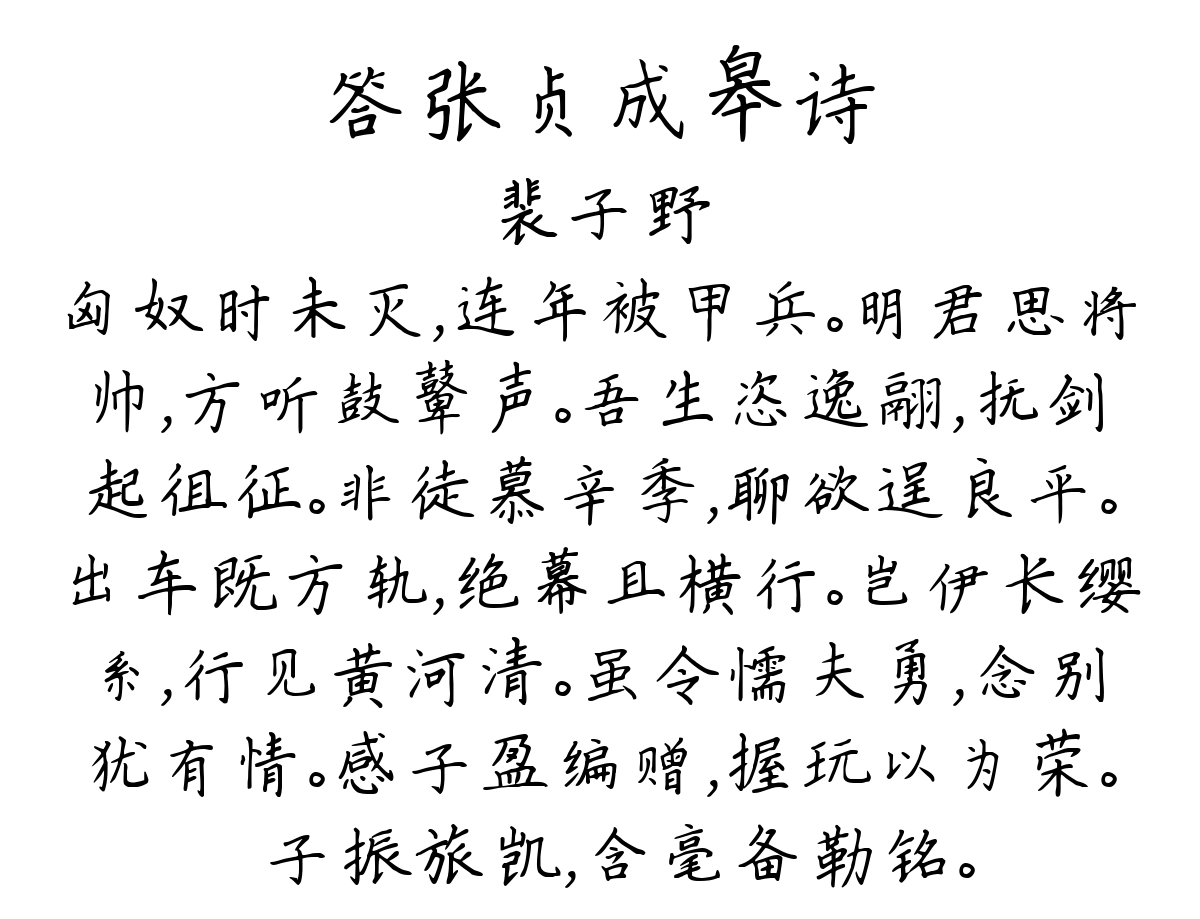 答张贞成皋诗
裴子野
匈奴时未灭,连年被甲兵。明君思将
帅,方听鼓鼙声。吾生恣逸翮,抚剑
起徂征。非徒慕辛季,聊欲逞良平。
出车既方轨,绝幕且横行。岂伊长缨
系,行见黄河清。虽令懦夫勇,念别
犹有情。感子盈编赠,握玩以为荣。
子振旅凯,含毫备勒铭。